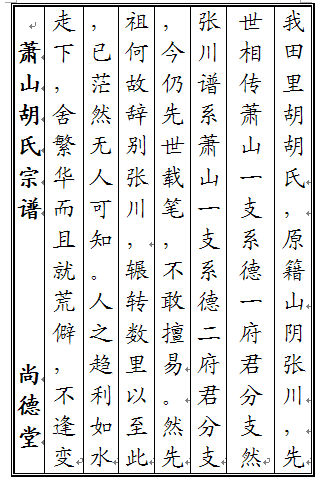 我田里胡胡氏，原籍山阴张川，先
世相传萧山一支系德一府君分支然
张川谱系萧山一支系德二府君分支
，今仍先世载笔，不敢擅易。然先
祖何故辞别张川，辗转数里以至此
，已茫然无人可知。人之趋利如水
走下，舍繁华而且就荒僻，不逢变
萧山胡氏宗谱 尚德堂